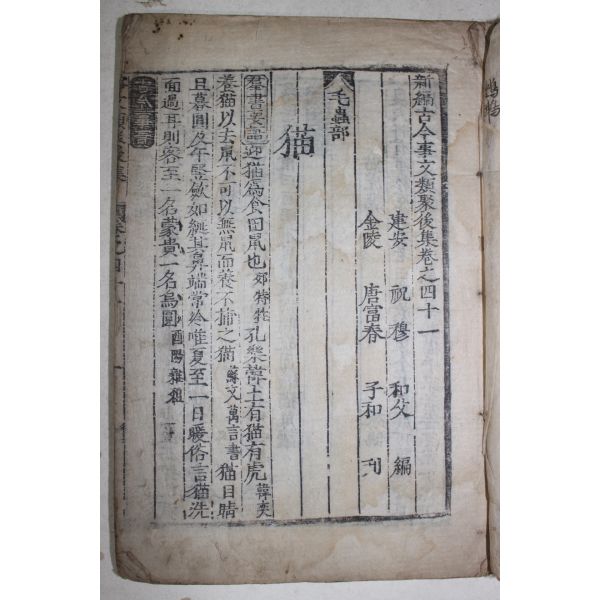 新編古今事文類聚後集卷之四十一
建安 祝穆 和父 編
金陵 唐富春 子和 刊
毛蟲部
猫
羣書要語迎猫爲食田鼠也郊特牲孔樂韓土有猫有虎韓奕
養猫以去鼠不可以無鼠而養不捕之猫蘇文萬言書猫目睛
旦暮圓及午竪歛如綖其鼻端常冷唯夏至一日暖俗言猫洗
面過耳則客至一名蒙貴一名烏圓酉陽雜俎